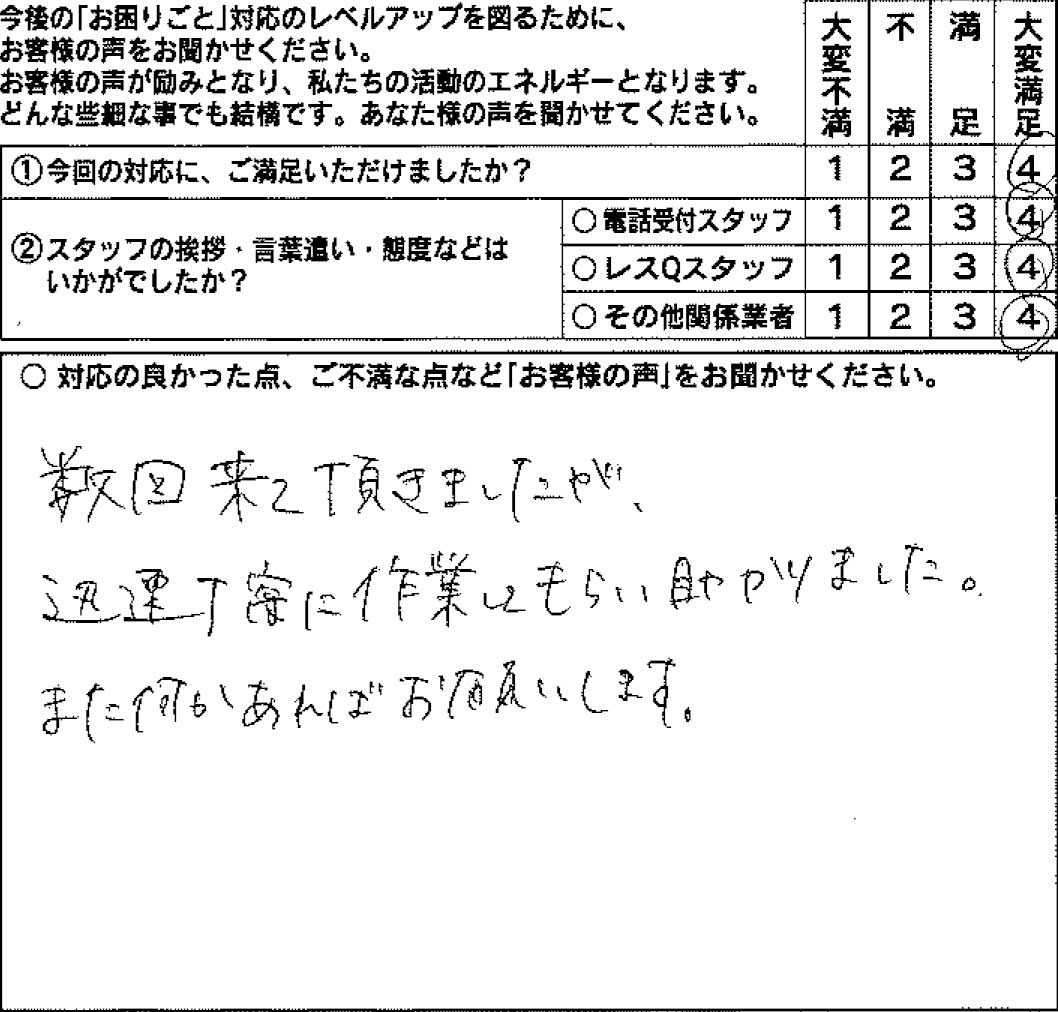 今後の「お困りごと」対応のレベルアップを図るために、
お客様の声をお聞かせください。
お客様の声が励みとなり、私たちの活動のエネルギーとなります。
どんな些細な事でも結構です。あなた様の声を聞かせてください。
大変不満 不満 満足 大変満足
①今回の対応に、ご満足いただけましたか? 1 2 3 4
②スタッフの挨拶・言葉遣い・態度などは
いかがでしたか?
○電話受付スタッフ 1 2 3 4
○レスQスタッフ 1 2 3 4
○その他関係業者 1 2 3 4
○ 対応の良かった点、ご不満な点など「お客様の声」をお聞かせください。
数回来て頂きましたが、
迅速丁寧に作業してもらい助かりました。
また何かあればお願いします。